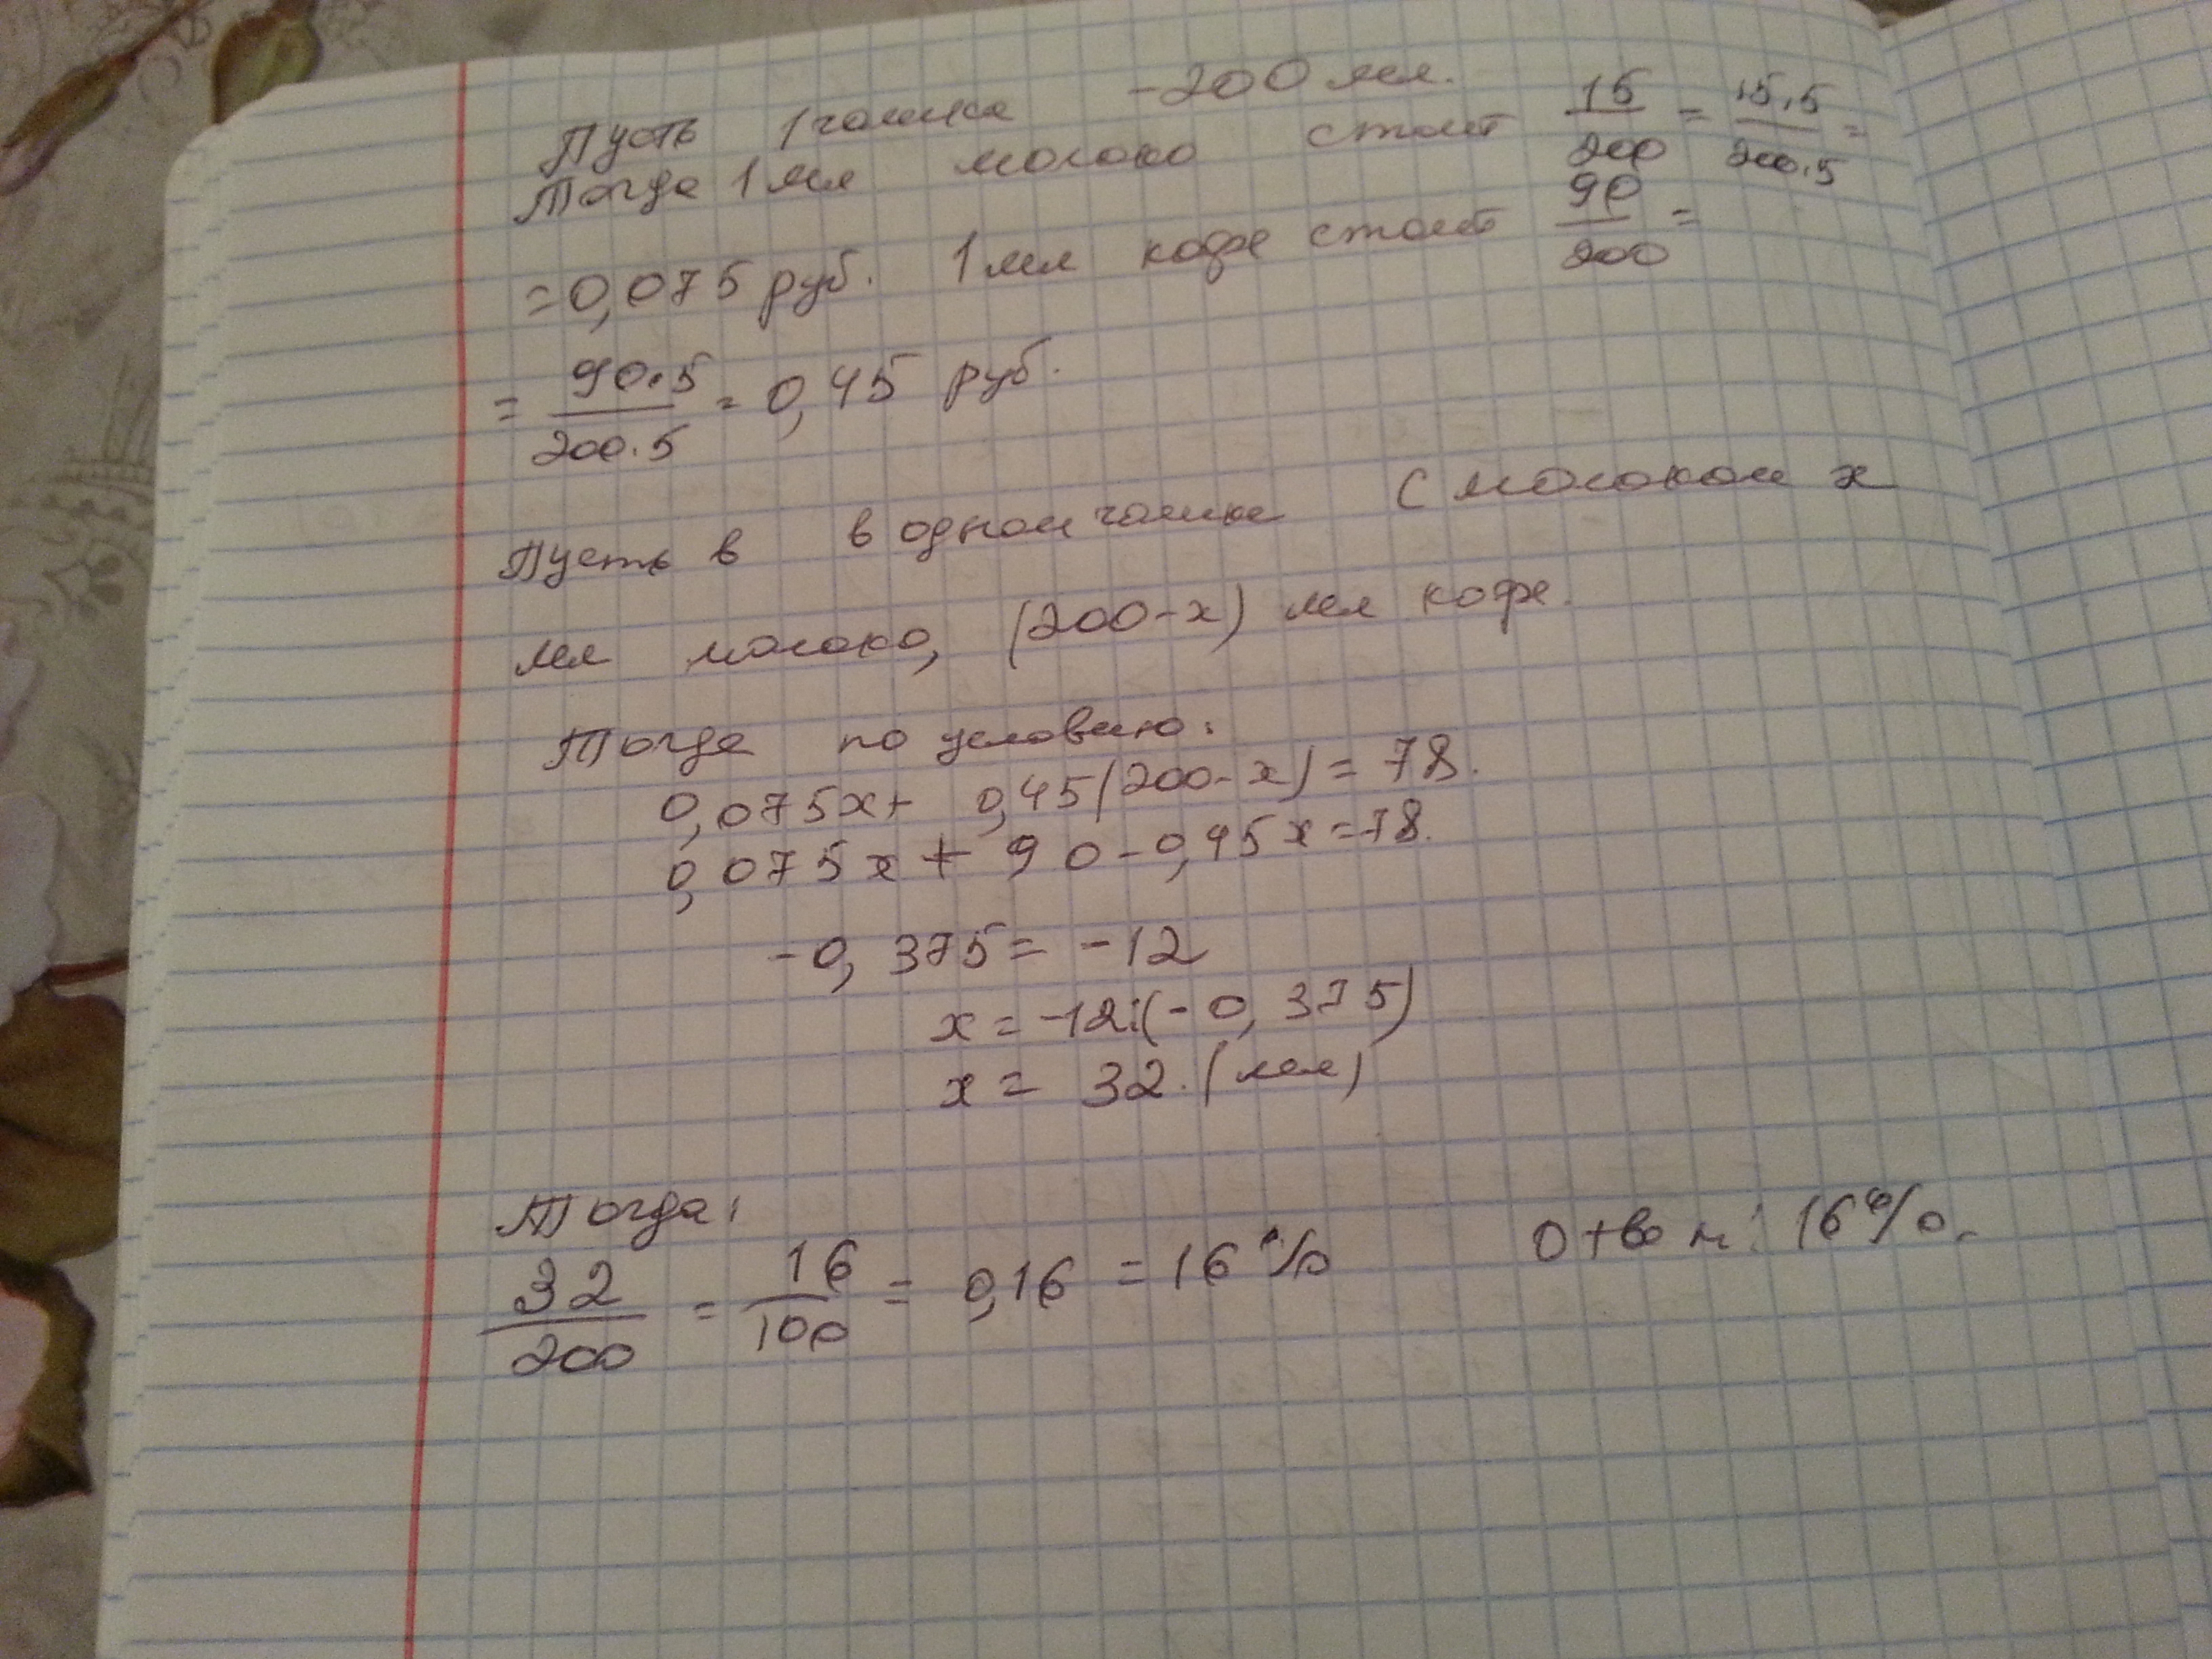 Пусть 1 чашка - 200 мл.
Тогда 1 мл молоко стоит 15/200 = 15·5/200·5 =
= 0,075 руб. 1 мл кофе стоит 90/200 =
= 90·5/200·5 = 0,45 руб.
Пусть в в одном чашке с молоком x
мл молоко, (200-x) мл кофе.
Тогда по условию:
0,075x+ 0,45(200-x) = 78.
0,075x + 90 - 0,45x = 78.
-0,375 = -12
x = -12:(-0,375)
x = 32. (мл)
Тогда:
32/200 = 16/100 = 0,16 = 16% Ответ: 16%.